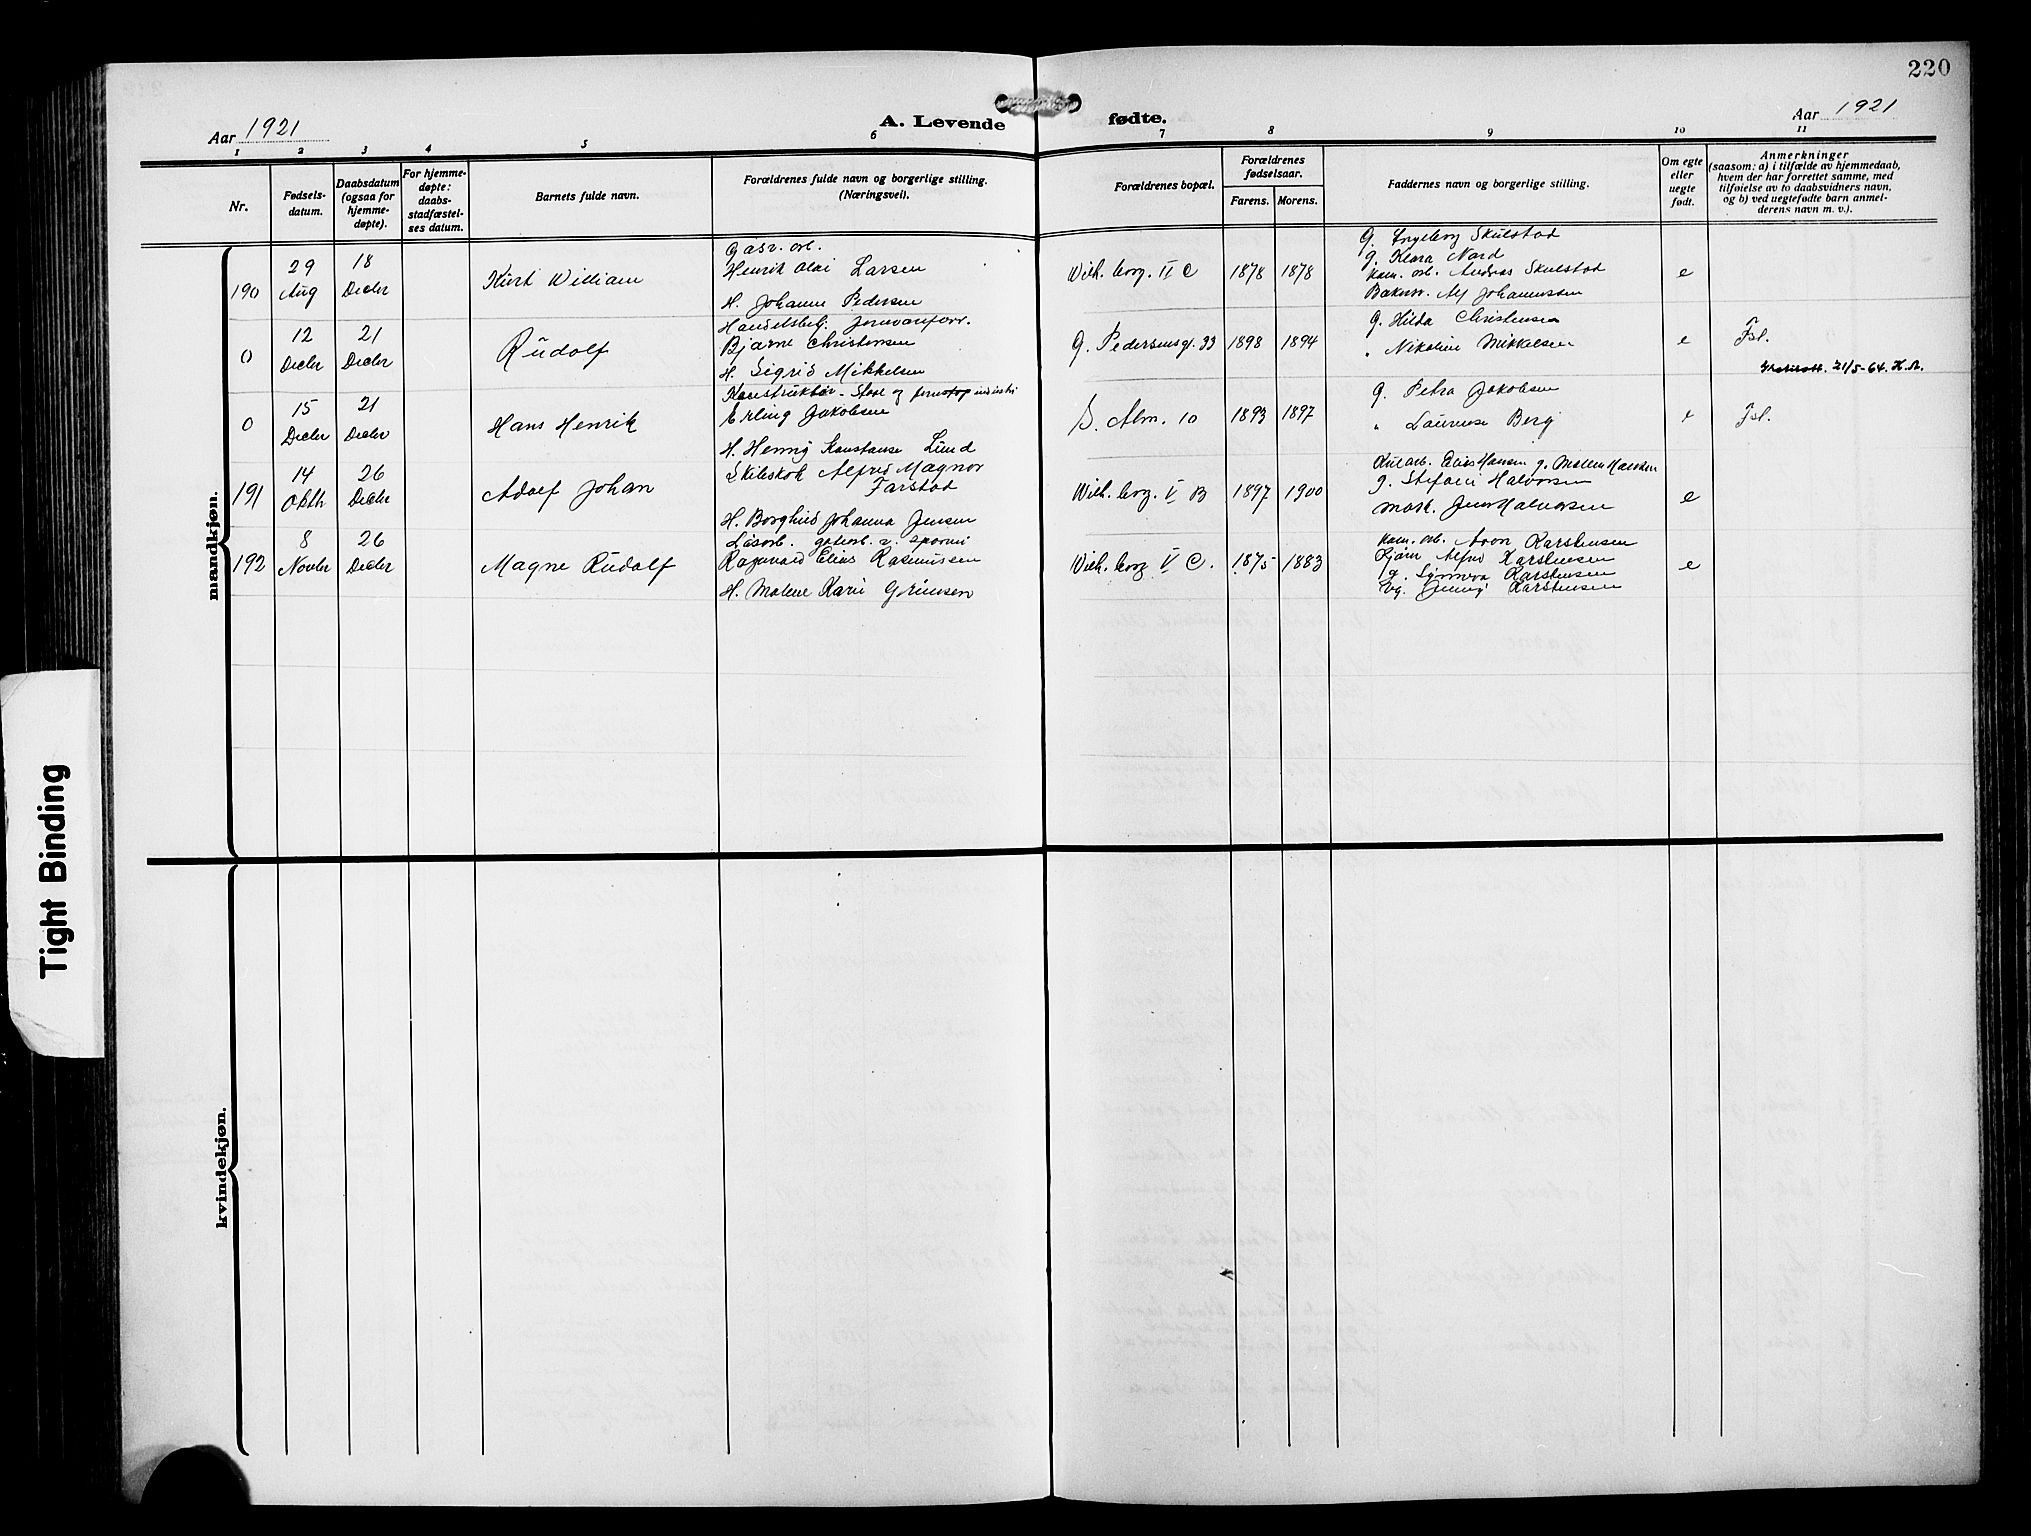 220
Aar 1921
A. Levende fødte.
Aar 1921
1 2 3 4 5 6 7 8 9 10 11
Nr.
Fødsels-
datum.
Daabsdatum
(ogsaa for
hjemme-
døpte).
For hjemme-
døpte:
daabs-
stadfæstel-
ses datum.
Barnets fulde navn.
Forældrenes fulde navn og borgerlige stilling.
(Næringsvei).
Forældrenes bopæl.
Forældrenes
fødselsaar.
Farens. Morens.
Faddernes navn og borgerlige stilling.
Om egte
eller
uegte
født.
Anmerkninger
(saasom: a) i tilfælde av hjemmedaab,
hvem der har forrettet samme, med
tilføielse av to daabsvidners navn,
og b) ved uegtefødte barn anmel-
derens navn m. v.).
mandkjøn.
190
29
Aug
18
Decbr
Kurt William
Gasv. arb.
Henrik Olai Larsen
H. Johanne Pedersen
Wilh. borg. II C
1878 1878
G. Ingeborg Skulstad
g. Klara Nord
kom. arb. Andreas Skulstad
Bakersv. Alf Johannessen
e
0
12
Decbr
21
Decbr
Rudolf
Handelsbetj. Jernvareforr.
Bjarne Christensen
H. Sigrid Mikkelsen
G. Pedersensgt. 33
1898 1894
G. Hilda Christensen
" Nikoline Mikkelsen
e
Fsl.
0
15
Decbr
21
Decbr
Hans Henrik
Konstruktør - Staal og industri
Erling Jakobsen
H. Henny Konstanse Lund
S. Alm. 10
1893 1897
G. Petra Jakobsen
" Laurense Berg
e
21/5-64. H.A.
Fsl.
191
14
Oktb
26
Decbr
Adolf Johan
Alfred Magnor
Farstad
H. Borghild Johanna Jensen
Wilh. borg. V B
1897 1900
Elias Hansen g. Malen Hansen
g. Stefanie Halvorsen
Mask. Jens Halvorsen
e
192
8
Novbr
26
Decbr
Magne Rudolf
Løsarb. gatearb. v. sporvei
Ragnvald Elias Rasmussen
H. Malene Karie Grimsen
Wilh. borg V C.
1875 1883
kom. arb. Aron Karstensen
Sjøm Alfred Karstensen
g. Synneva Karstensen
Ug. Jenny Karstensen
e
kvindekjøn.
Tight Binding